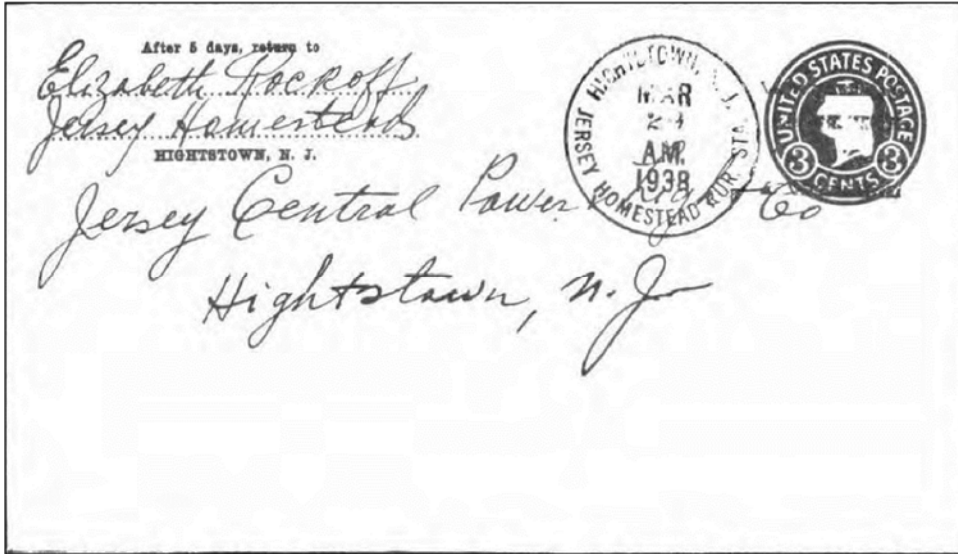 After 5 days, return to
Elizabeth Rockoff
Jersey Homesteads
HIGHTSTOWN, N. J.
HIGHTSTOWN, N. J.
MAR
AM.
1938
JERSEY HOMESTEAD RUR. STA.
UNITED STATES POSTAGE
3 CENTS 3
Jersey Central Power Co
Hightstown, N. J.